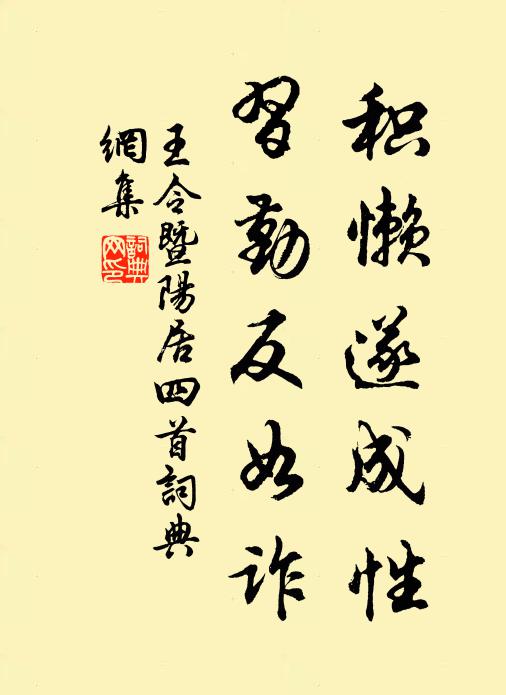 积懒遂成性
習勤反如诈
王令暨陽居四首詞典
網集
詞典
网印